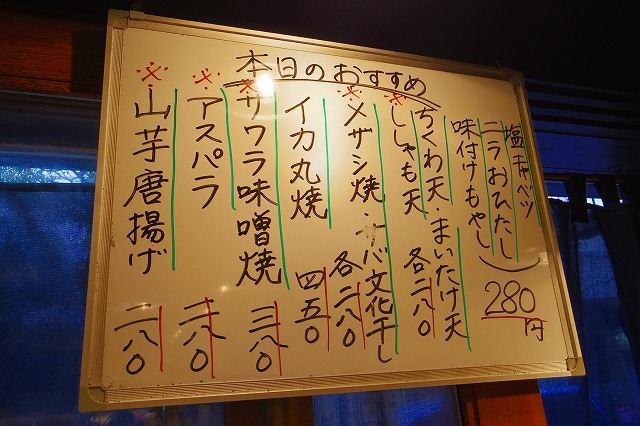 本日のおすすめ
塩キャベツ
ニラおひたし
味付けもやし
280円
ちくわ天 まいたけ天
※ししゃも天 各二八〇
※メザシ焼・サバ文化干し 各二八〇
イカ丸焼 四五〇
※サワラ味噌焼 三八〇
※アスパラ 二八〇
※山芋唐揚げ 二八〇